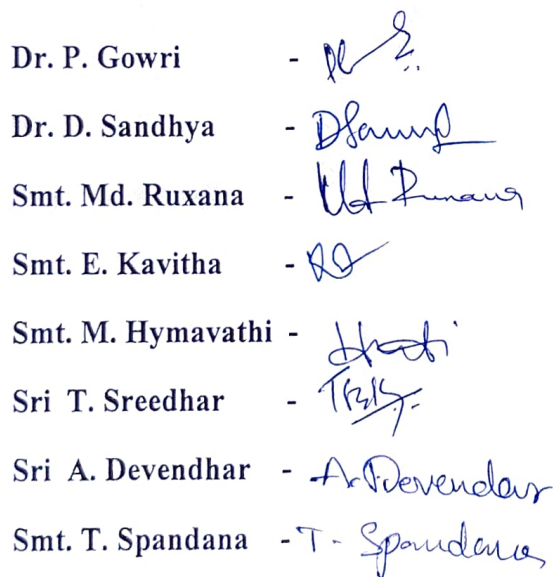 Dr. P. Gowri -
Dr. D. Sandhya -
Smt. Md. Ruxana - Md Ruxana
Smt. E. Kavitha -
Smt. M. Hymavathi -
Sri T. Sreedhar -
Sri A. Devendhar - A. Devendar
Smt. T. Spandana - T. Spandana